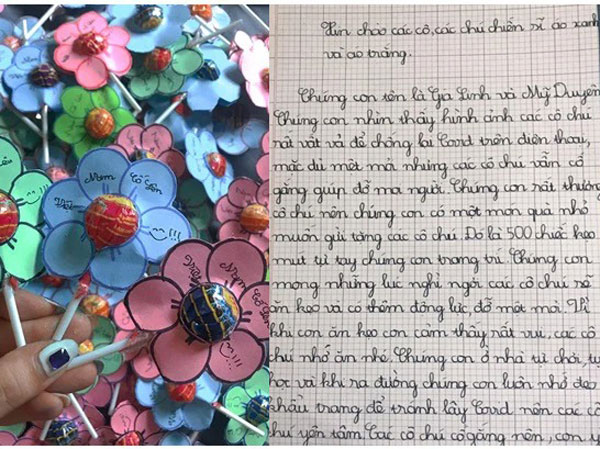 Việt
Nam
Cố Lên
!!!
Việt
Nam
Cố Lên
Xin chào các cô, các chú chiến sĩ áo xanh
và áo trắng.
Chúng con tên là Gia Linh và Mỹ Duyên
Chúng con nhìn thấy hình ảnh các cô chú
rất vất vả để chống lại Covid trên điện thoại,
mặc dù mệt mỏi nhưng các cô chú vẫn cố
gắng giúp đỡ mọi người. Chúng con rất thương
cô chú nên chúng con có một món quà nhỏ
muốn gửi tặng các cô chú. Đó là 500 chiếc kẹo
mút tự tay chúng con trang trí. Chúng con
mong những lúc nghỉ ngơi các cô chú sẽ
ăn kẹo và có thêm động lực, đỡ mệt mỏi. Vì
khi con ăn kẹo con cảm thấy rất vui, các cô
chú nhớ ăn nhé. Chúng con ở nhà tự chơi, tự
học và khi ra đường chúng con luôn nhớ đeo
khẩu trang để tránh lây Covid nên các cô
chú yên tâm. Các cô chú cố gắng nên, con y